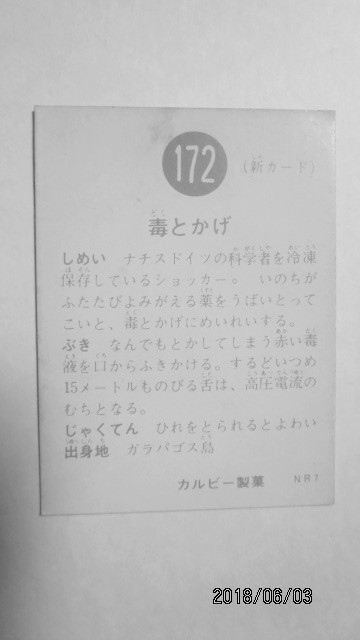 172
(新カード)
毒とかげ
しめい ナチスドイツの科学者を冷凍
保存しているショッカー。 いのちが
ふたたびよみがえる薬をうばいとって
こいと、毒とかげにめいれいする。
ぶき なんでもとかしてしまう赤い毒
液を口からふきかける。するどいつめ
15メートルものびる舌は、高圧電流の
むちとなる。
じゃくてん ひれをとられるとよわい
出身地 ガラパゴス島
カルビー製菓 NR7
2018/06/03